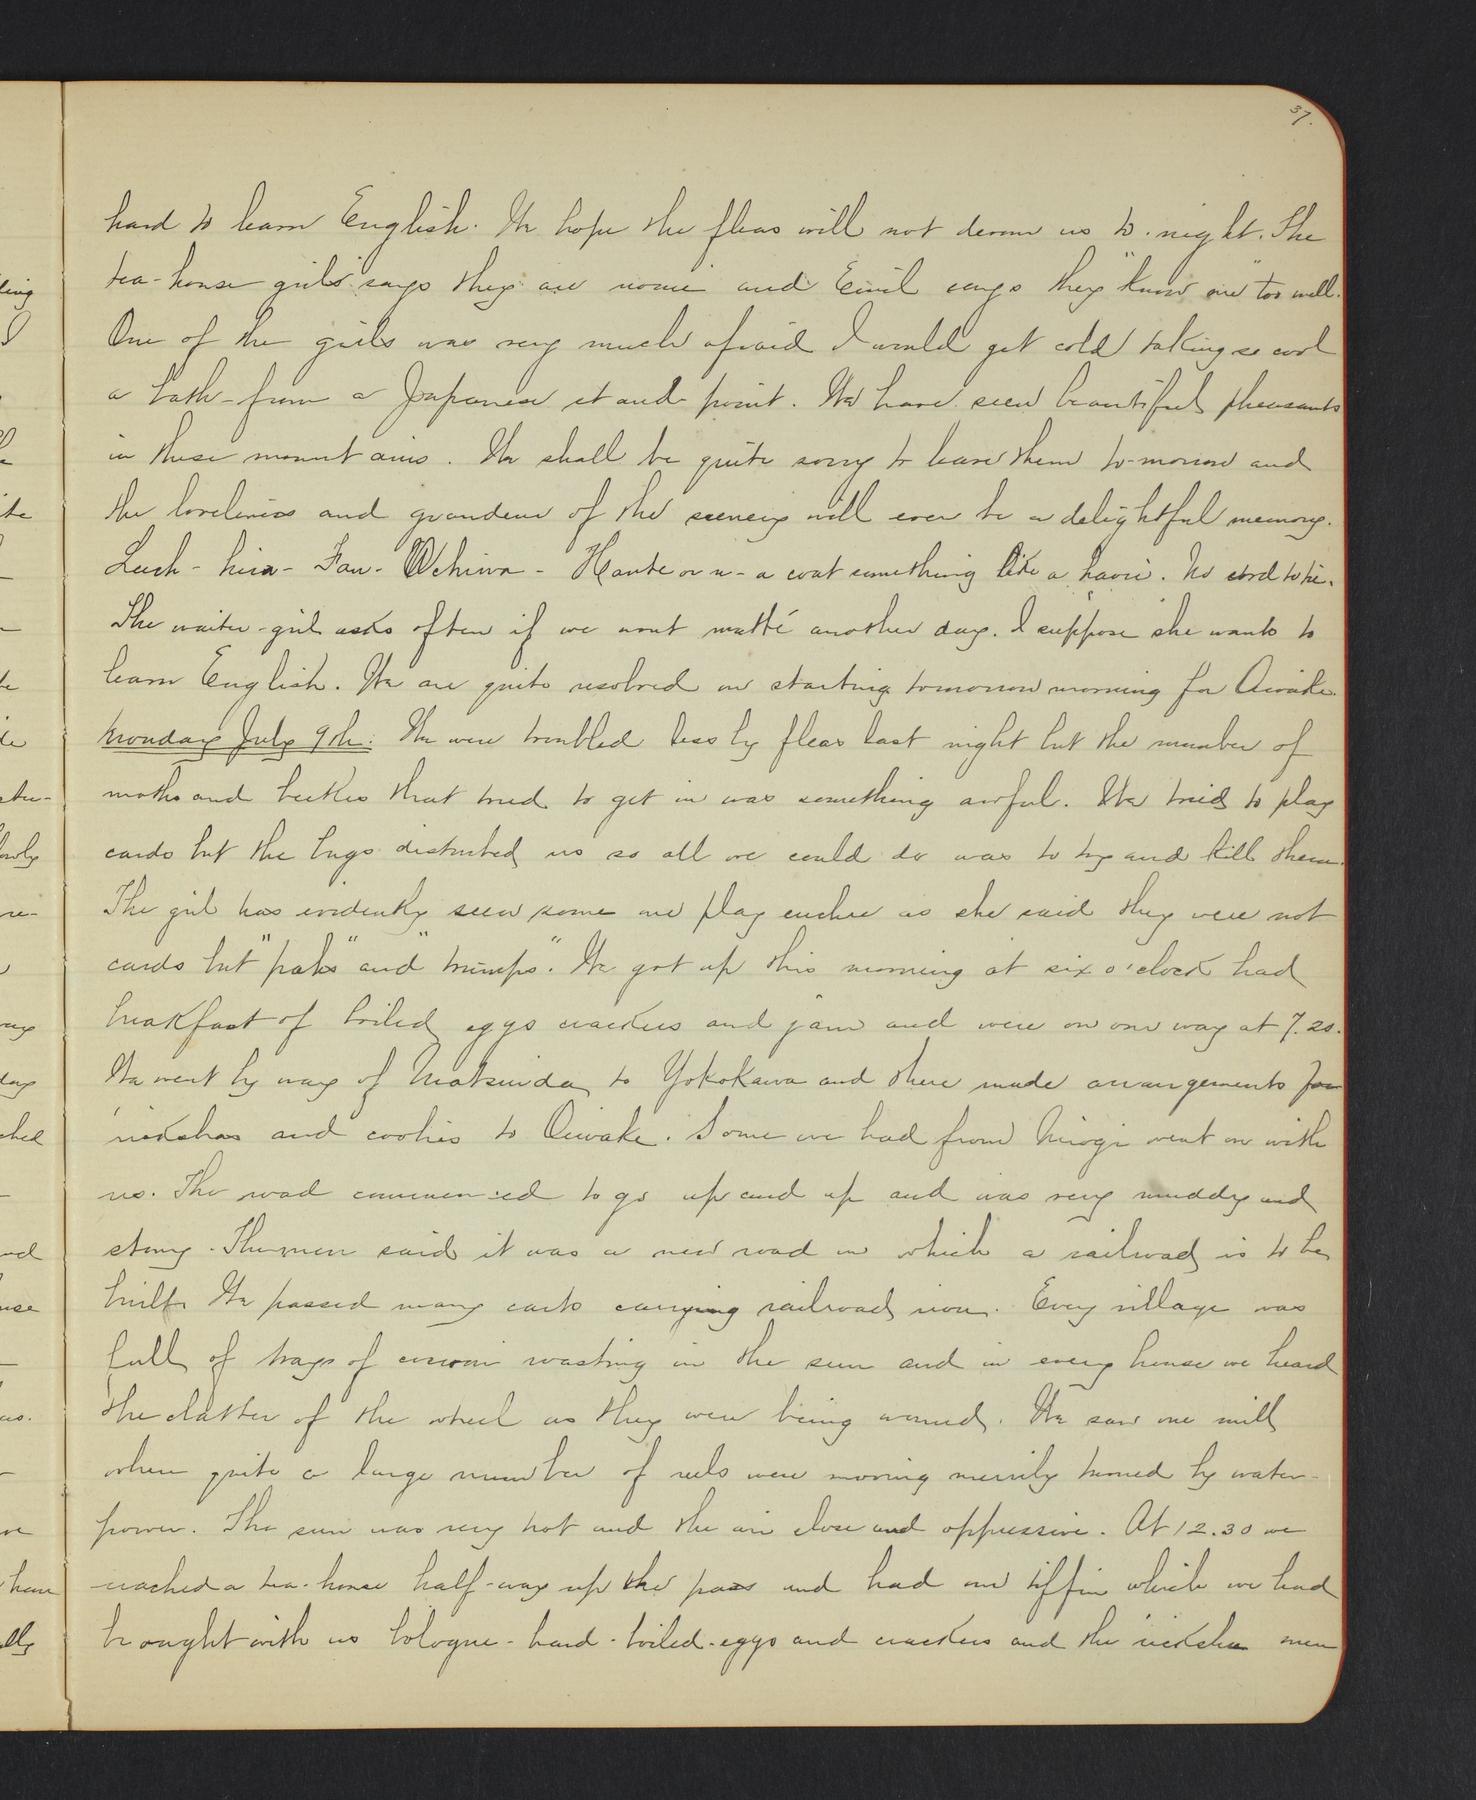 37.
hard to learn English. We hope the fleas will not devour us to-night. The
tea-house girls says they are nomi and Emil says they "know me" too well.
One of the girls was very much afraid I would get cold taking so cool
a bath - from a Japanese stand-point. We have seen beautiful pheasants
in these mountains. We shall be quite sorry to leave them to-morrow and
the loveliness and grandeur of the scenery will ever be a delightful memory.
Leech - hiru - Fan - Uchiwa - - a coat something like a haori. No cord to tie.
The waiter-girl asks often if we wont matté another day. I suppose she wants to
learn English. We are quite resolved on starting tomorrow morning for Oiwake.
Monday July 9th. We were troubled less by fleas last night but the number of
moths and beetles that tried to get in was something awful. We tried to play
cards but the bugs disturbed us so all we could do was to try and kill them.
The girl has evidently seen some one play euchre as she said they were not
cards but "paks" and "trumps". We got up this morning at six o'clock had
breakfast of boiled eggs crackers and jam and were on our way at 7.20.
We went by way of Matsuida to Yokokawa and there made arrangements for
'rickshas and coolies to Oiwake. Some we had from Miogi went on with
us. The road commenced to go up and up and was very muddy and
stony. The men said it was a new road on which a railroad is to be
built. We passed many carts carrying railroad iron. Every village was
full of trays of cocoons roasting in the sun and in every house we heard
the clatter of the wheel as they were being wound. We saw one mill
where quite a large number of reels were moving merrily turned by water-
power. The sun was very hot and the air close and oppressive. At 12.30 we
reached a tea-house half-way up the pass and had our tiffin which we had
brought with us bologne - hard-boiled-eggs and crackers and the 'ricksha men